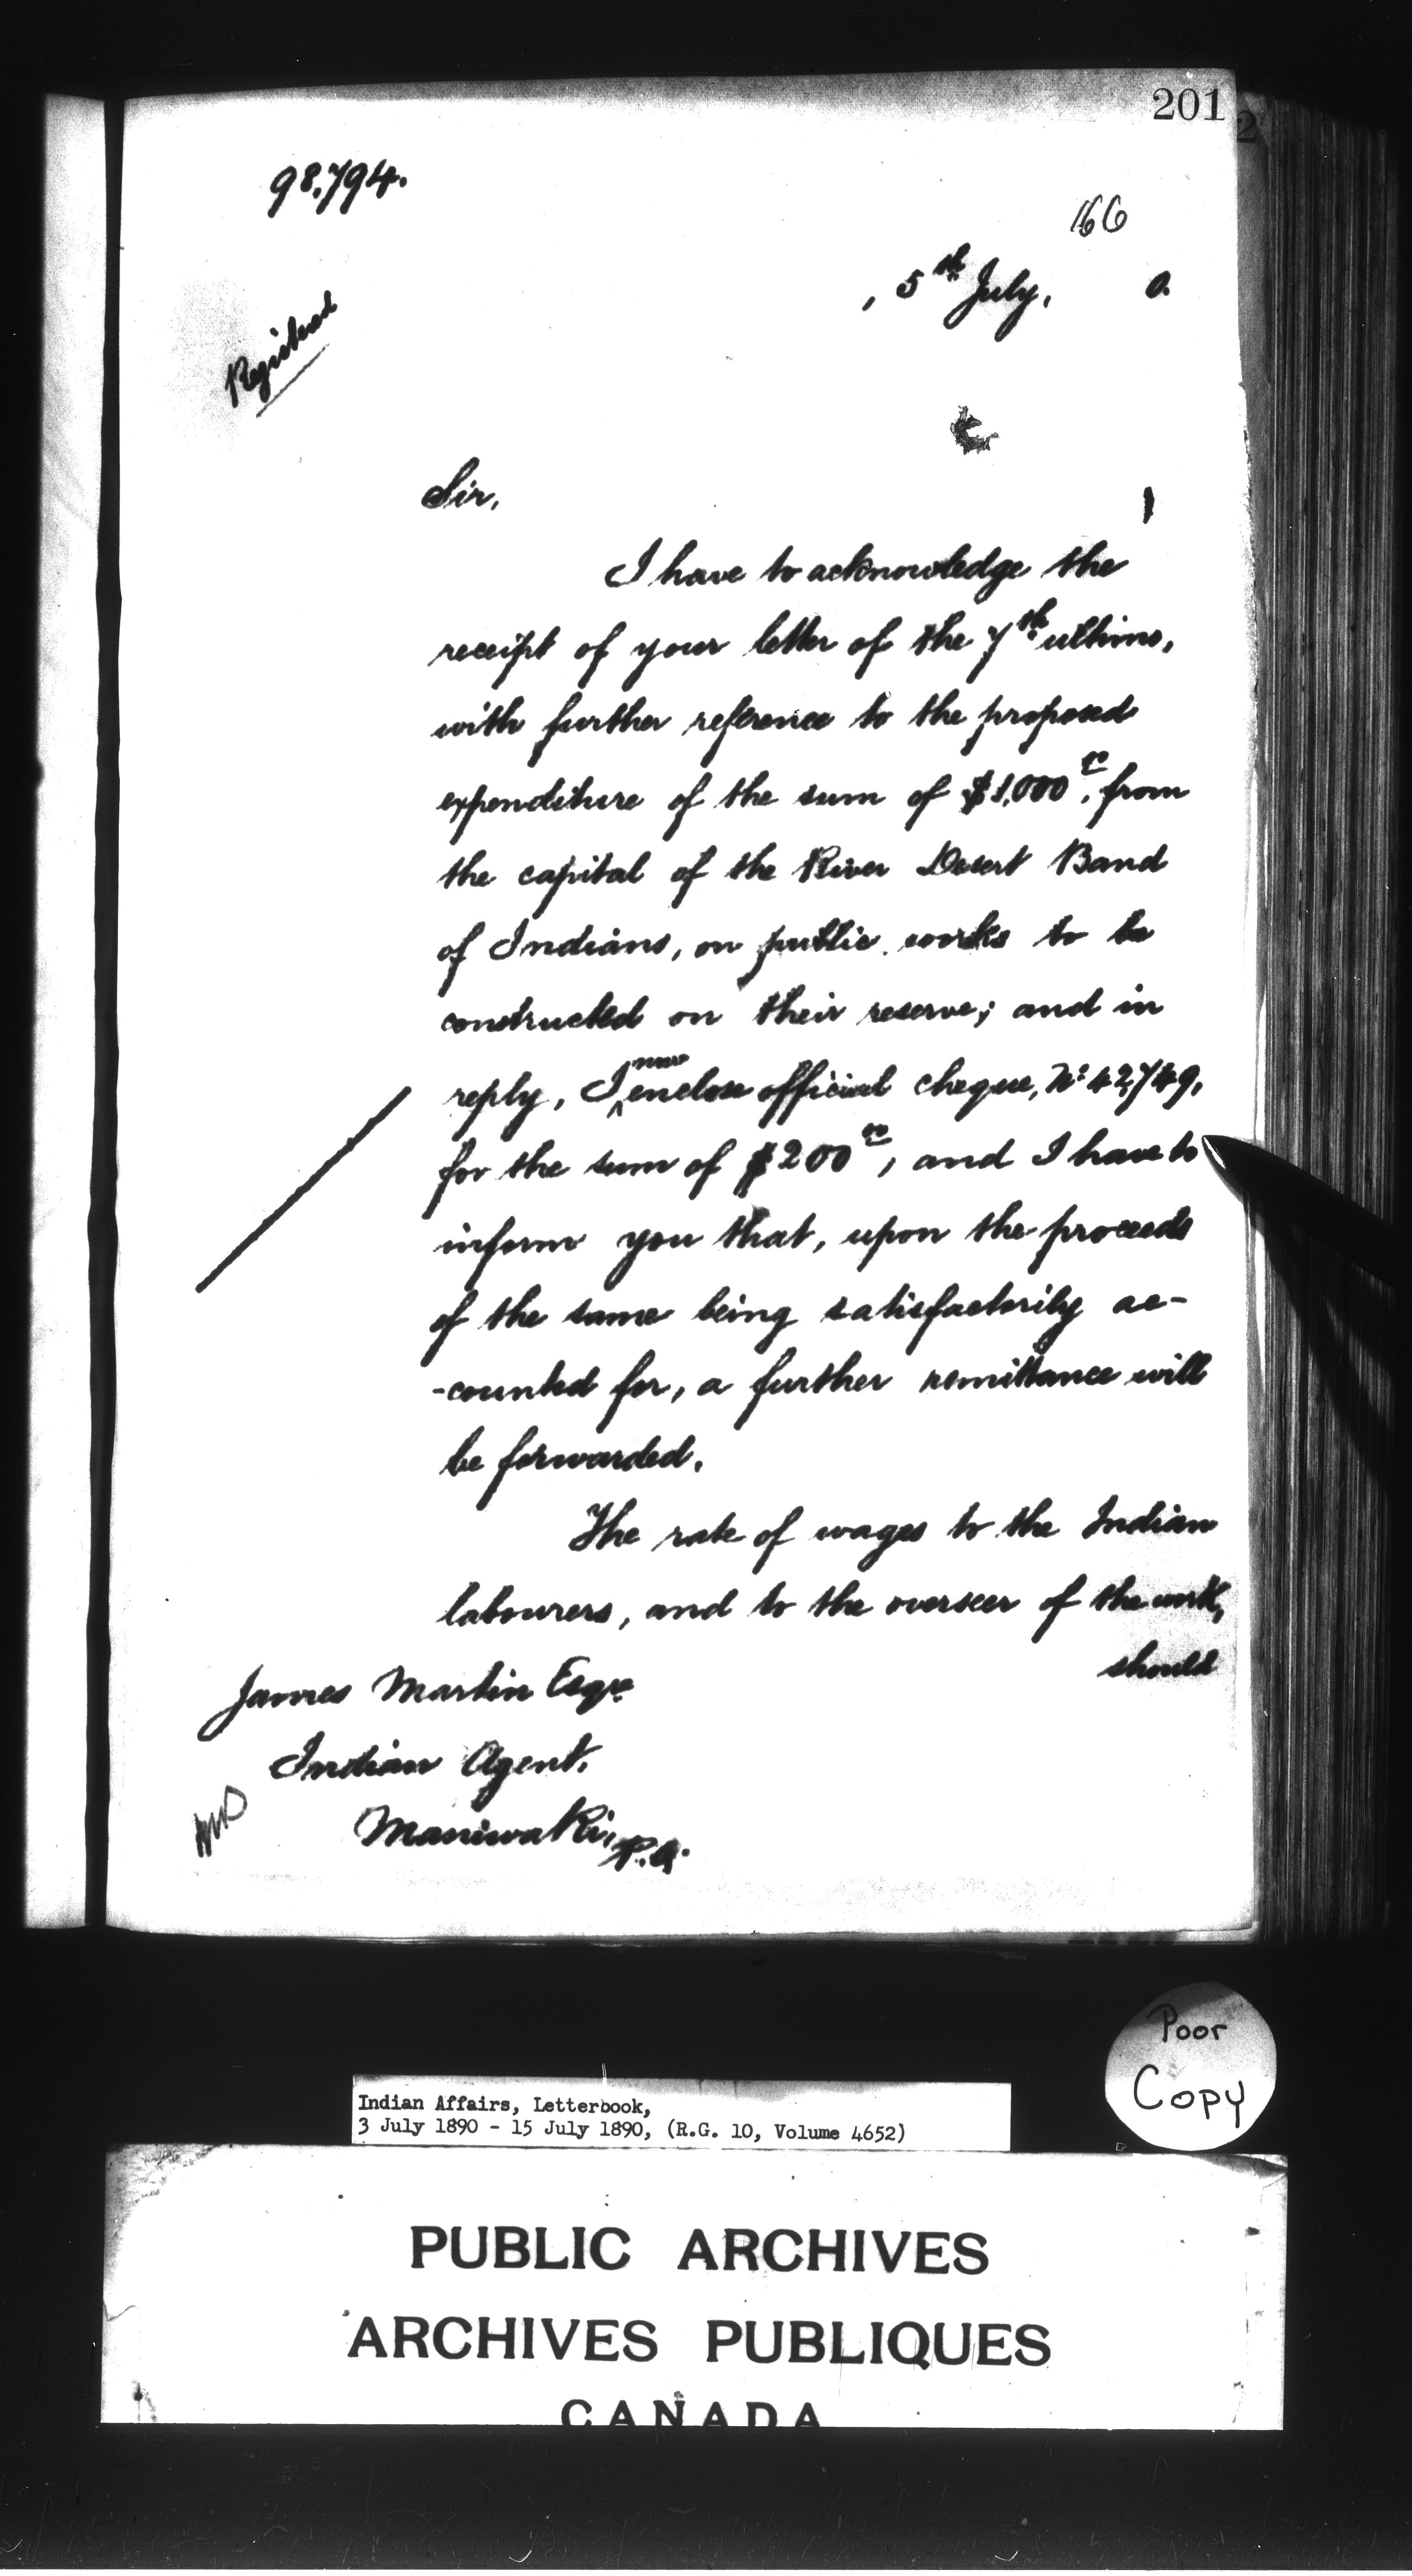 201
2
98,794.
166
, 5th July, 0.
Registered
Sir,
I have to acknowledge the
receipt of your letter of the 7th ultimo,
with further reference to the proposed
expenditure of the sum of $1,000 00, from
the capital of the River Desert Band
of Indians, on public works to be
constructed on their reserve; and in
now
reply, I enclose official cheque, No 42,749,
for the sum of $200 00, and I have to
inform you that, upon the proceeds
of the same being satisfactorily ac-
-counted for, a further remittance will
be forwarded.
The rate of wages to the Indian
labourers, and to the overseer of the work,
should
James Martin Esqre
Indian Agent,
Maniwaki, P.Q.
Poor
Copy
Indian Affairs, Letterbook,
3 July 1890 - 15 July 1890, (R.G. 10, Volume 4652)
PUBLIC ARCHIVES
ARCHIVES PUBLIQUES
CANADA